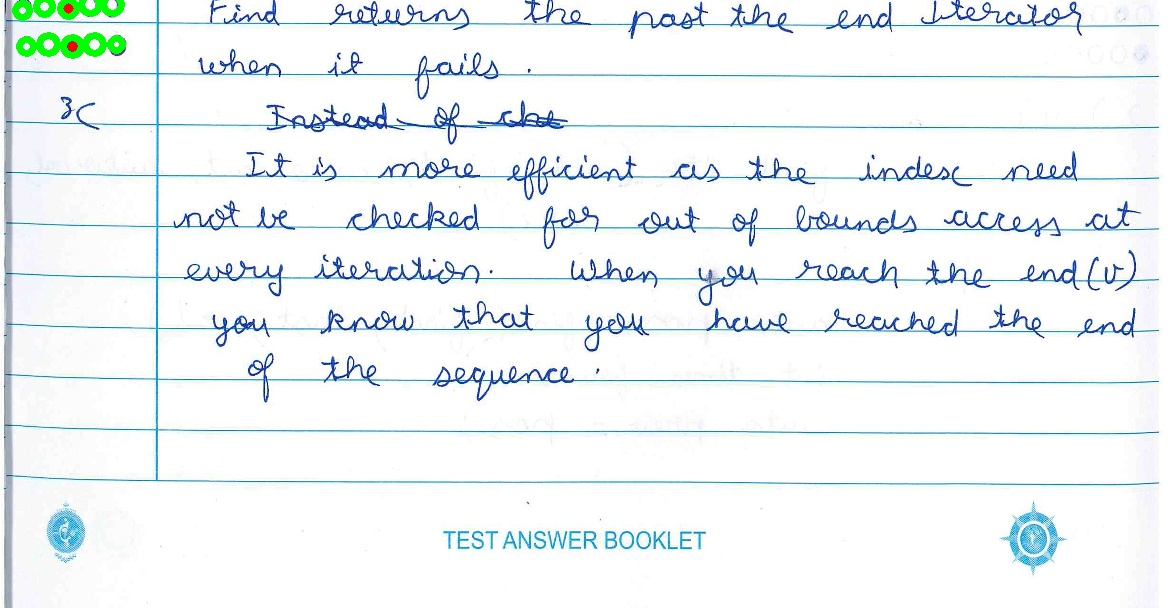 Find returns the past the end Iterator
when it fails.
3C
Instead of
It is more efficient as the index need
not be checked for out of bounds access at
every iteration. When you reach the end(v)
you know that you have reached the end
of the sequence.
TEST ANSWER BOOKLET